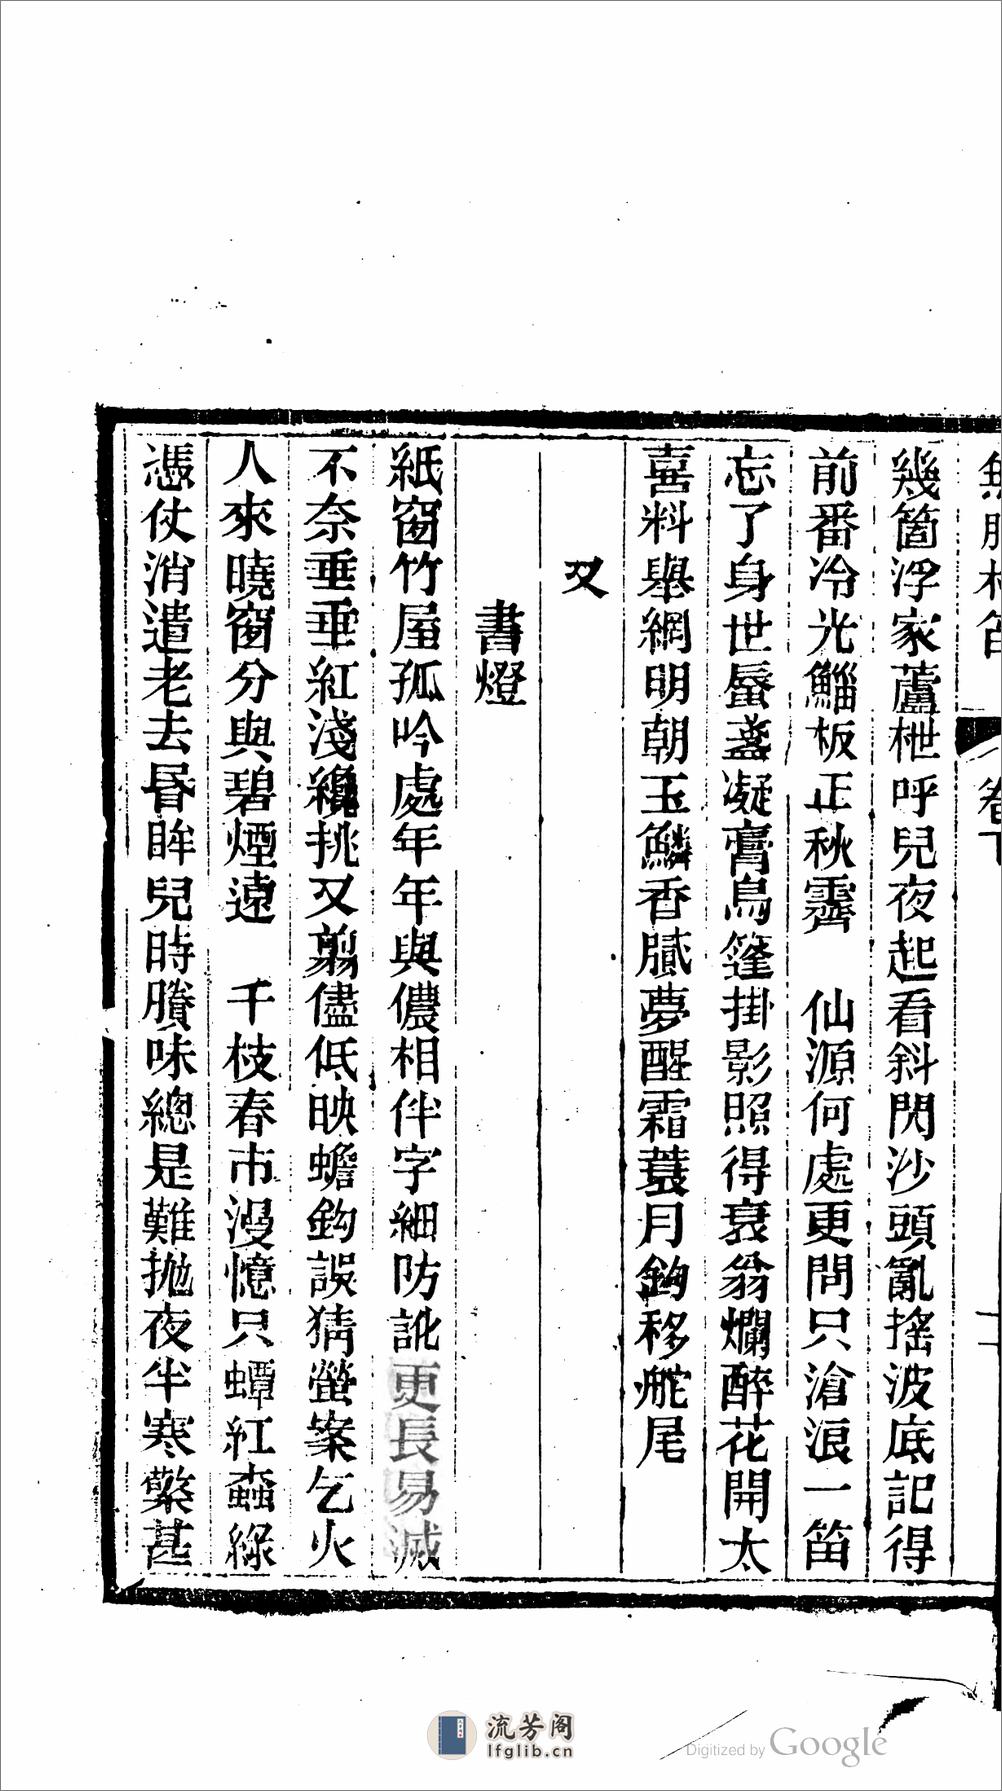 卷下
幾箇浮家蘆枻呼兒夜起看斜閃沙頭亂搖波底記得
前番冷光鯔板正秋霽　仙源何處更問只滄浪一笛
忘了身世蜃盞凝膏烏篷掛影照得衰翁爛醉花開太
喜料舉網明朝玉鱗香膩夢醒霜蓑月鉤移舵尾
又
書燈
紙窗竹屋孤吟處年年與儂相伴字細防訛更長易滅
不奈垂垂紅淺纔挑又剪儘低映蟾鉤誤猜螢案乞火
人來曉窗分與碧煙遠　千枝春市漫憶只蟫紅蟲綠
憑仗消遣老去昬眸兒時賸味總是難拋夜半寒檠甚
流芳阁
lfglib.cn
Digitized by Google